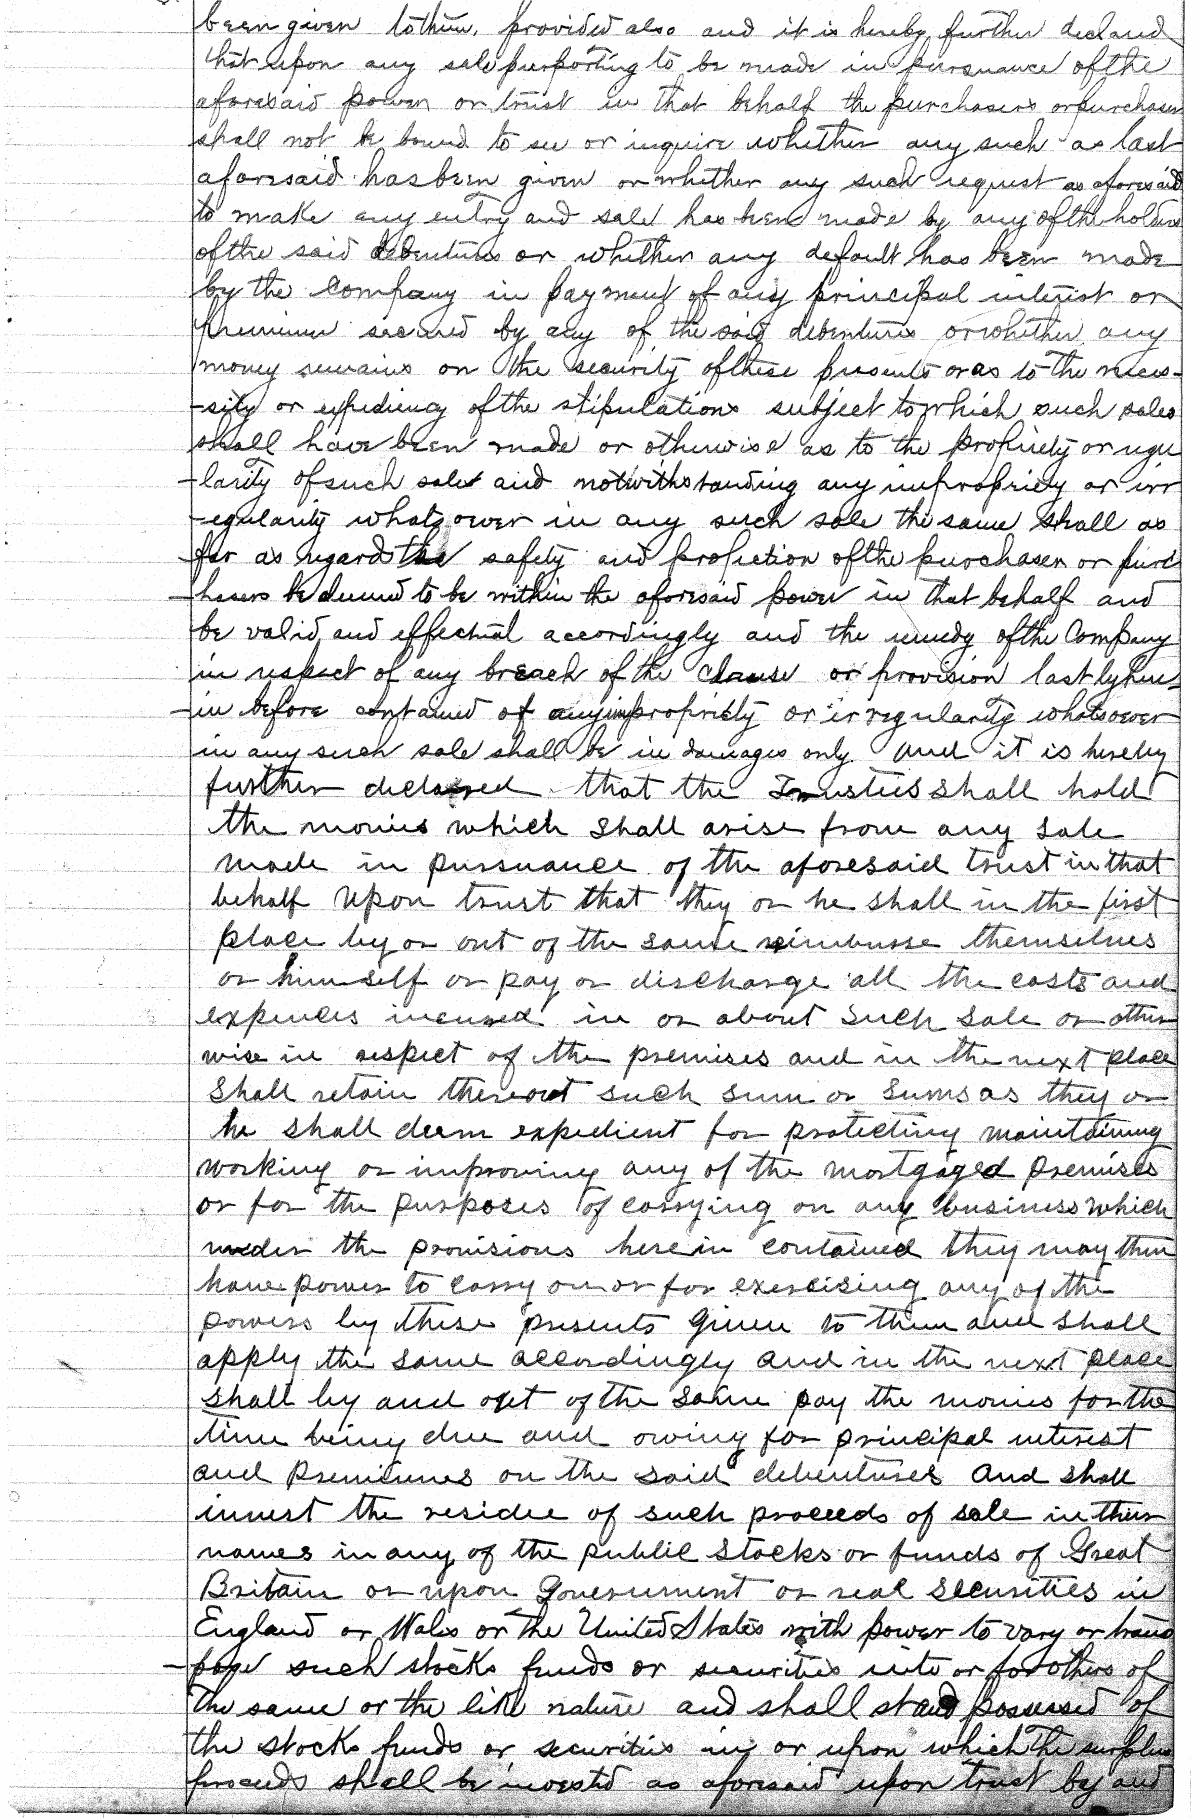 been given to them, provided also and it is hereby further declared
that upon any sale purporting to be made in pursuance of the
aforesaid power or trust in that behalf the purchasers or purchaser
shall not be bound to see or inquire whether any such as last
aforesaid has been given or whether any such request as aforesaid
to make any entry and sale has been made by any of the holders
of the said debentures or whether any default has been made
by the Company in payment of any principal interest or
premium secured by any of the said debentures or whether any
money remains on the security of these presents or as to the neces-
-sity or expediency of the stipulations subject to which such sales
shall have been made or otherwise as to the propriety or regu
-larity of such sales and notwithstanding any impropriety or irr
-egularity whatsoever in any such sale the same shall as
far as regards the safety and protection of the purchaser or purc
-hasers be deemed to be within the aforesaid power in that behalf and
be valid and effectual accordingly and the remedy of the Company
in respect of any breach of the clause or provision lastly here-
-in before contained of any impropriety or irregularity whatsoever
in any such sale shall be in damages only and it is hereby
further declared that the Trustees shall hold
the monies which shall arise from any sale
made in pursuance of the aforesaid trust in that
behalf upon trust that they or he shall in the first
place by or out of the same reimburse themselves
or himself or pay or discharge all the costs and
expences incurred in or about such sale or other
wise in respect of the premises and in the next place
shall retain thereout such sum or sums as they or
he shall deem expedient for protecting maintaining
working or improving any of the mortgaged premises
or for the purposes of carrying on any business which
under the provisions herein contained they may then
have power to carry on or for exercising any of the
powers by these presents given to them and shall
apply the same accordingly and in the next place
shall by and out of the same pay the monies for the
time being due and owing for principal interest
and premiums on the said debentures and shall
invest the residue of such proceeds of sale in their
names in any of the public stocks or funds of Great
Britain or upon Government or real securities in
England or Wales or the United States with power to vary or trans
-pose such stocks funds or securities into or for others of
the same or the like nature and shall stand possessed of
the stocks funds or securities in or upon which the surplus
proceeds shall be invested as aforesaid upon trust by and